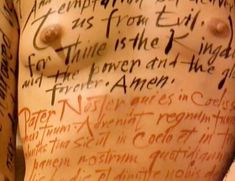 And temptation but deliver
us from Evil.
for Thine is the Kingdo
and the Power and the gl
forever. Amen.
Pater Noster qui es in Coelis
tuum. Adveniat regnum tuum
tua sicut in Coelo et in t
panem nostrum quotidianu
die et dimitte nobis d